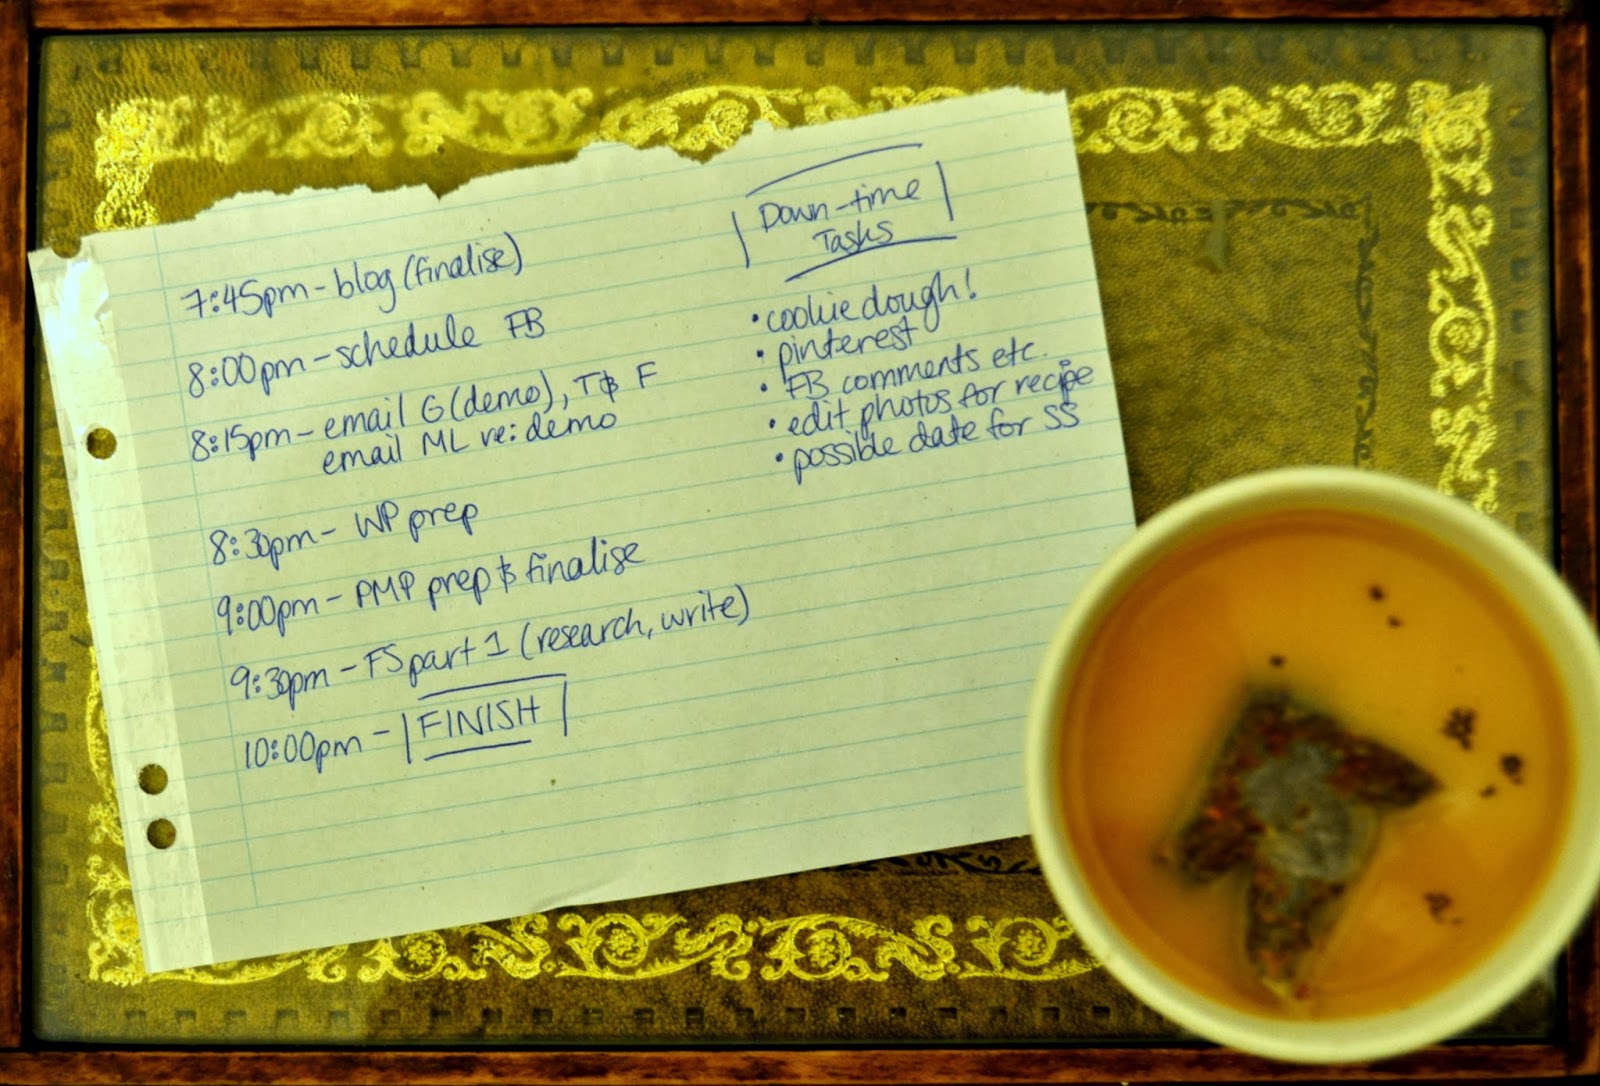 7:45pm - blog (finalise)
8:00pm - schedule FB
8:15pm - email G (demo), T & F
email ML re: demo
8:30pm - WP prep
9:00pm - PMP prep & finalise
9:30pm - FS part 1 (research, write)
10:00pm - FINISH
Down-time
Tasks
• cookie dough!
• pinterest
• FB comments etc.
• edit photos for recipe
• possible date for SS